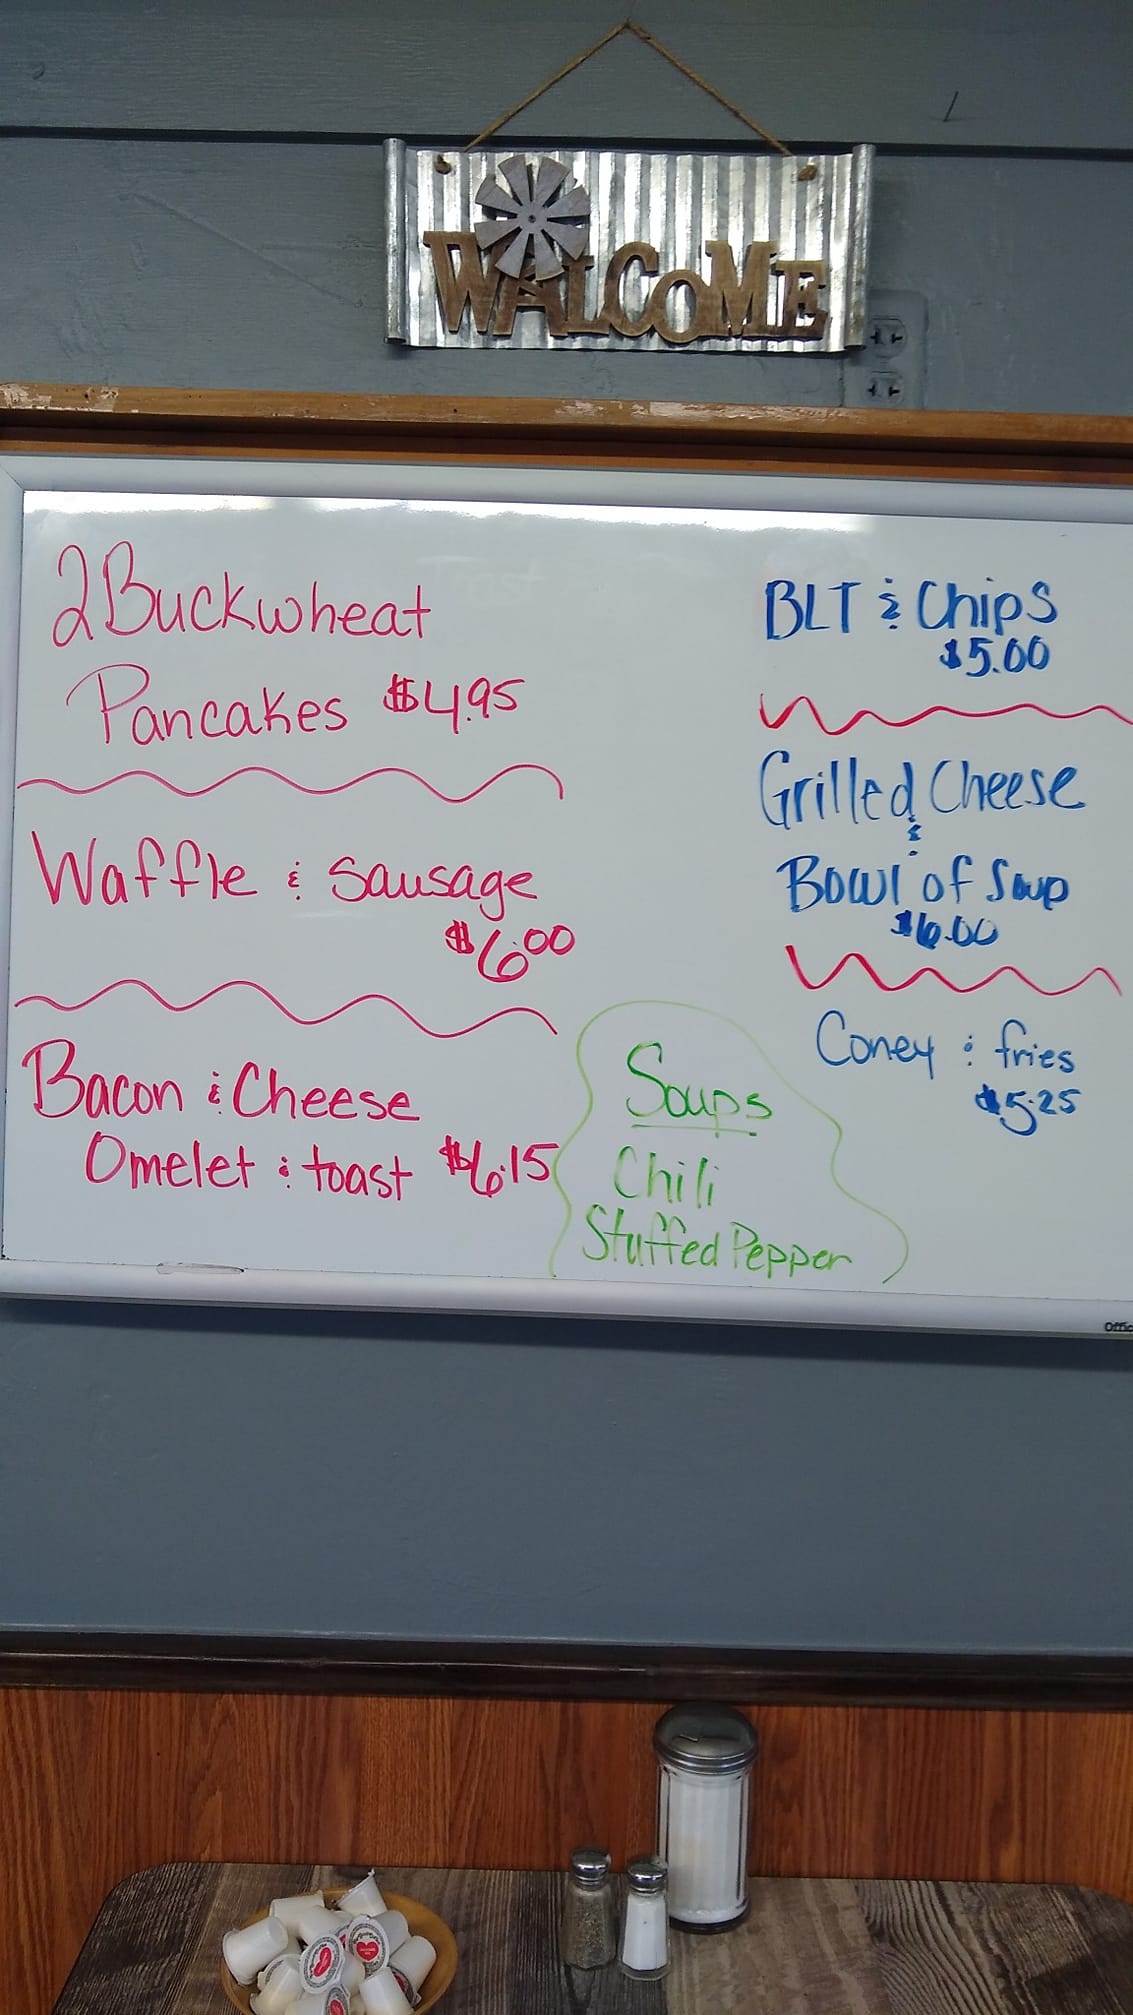 WALCOME
2 Buckwheat
Pancakes $4.95
Waffle & Sausage
$6.00
Bacon & Cheese
Omelet & toast $6.15
BLT & Chips
$5.00
Grilled Cheese
&
Bowl of Soup
$6.00
Coney & fries
$5.25
Soups
Chili
Stuffed Pepper